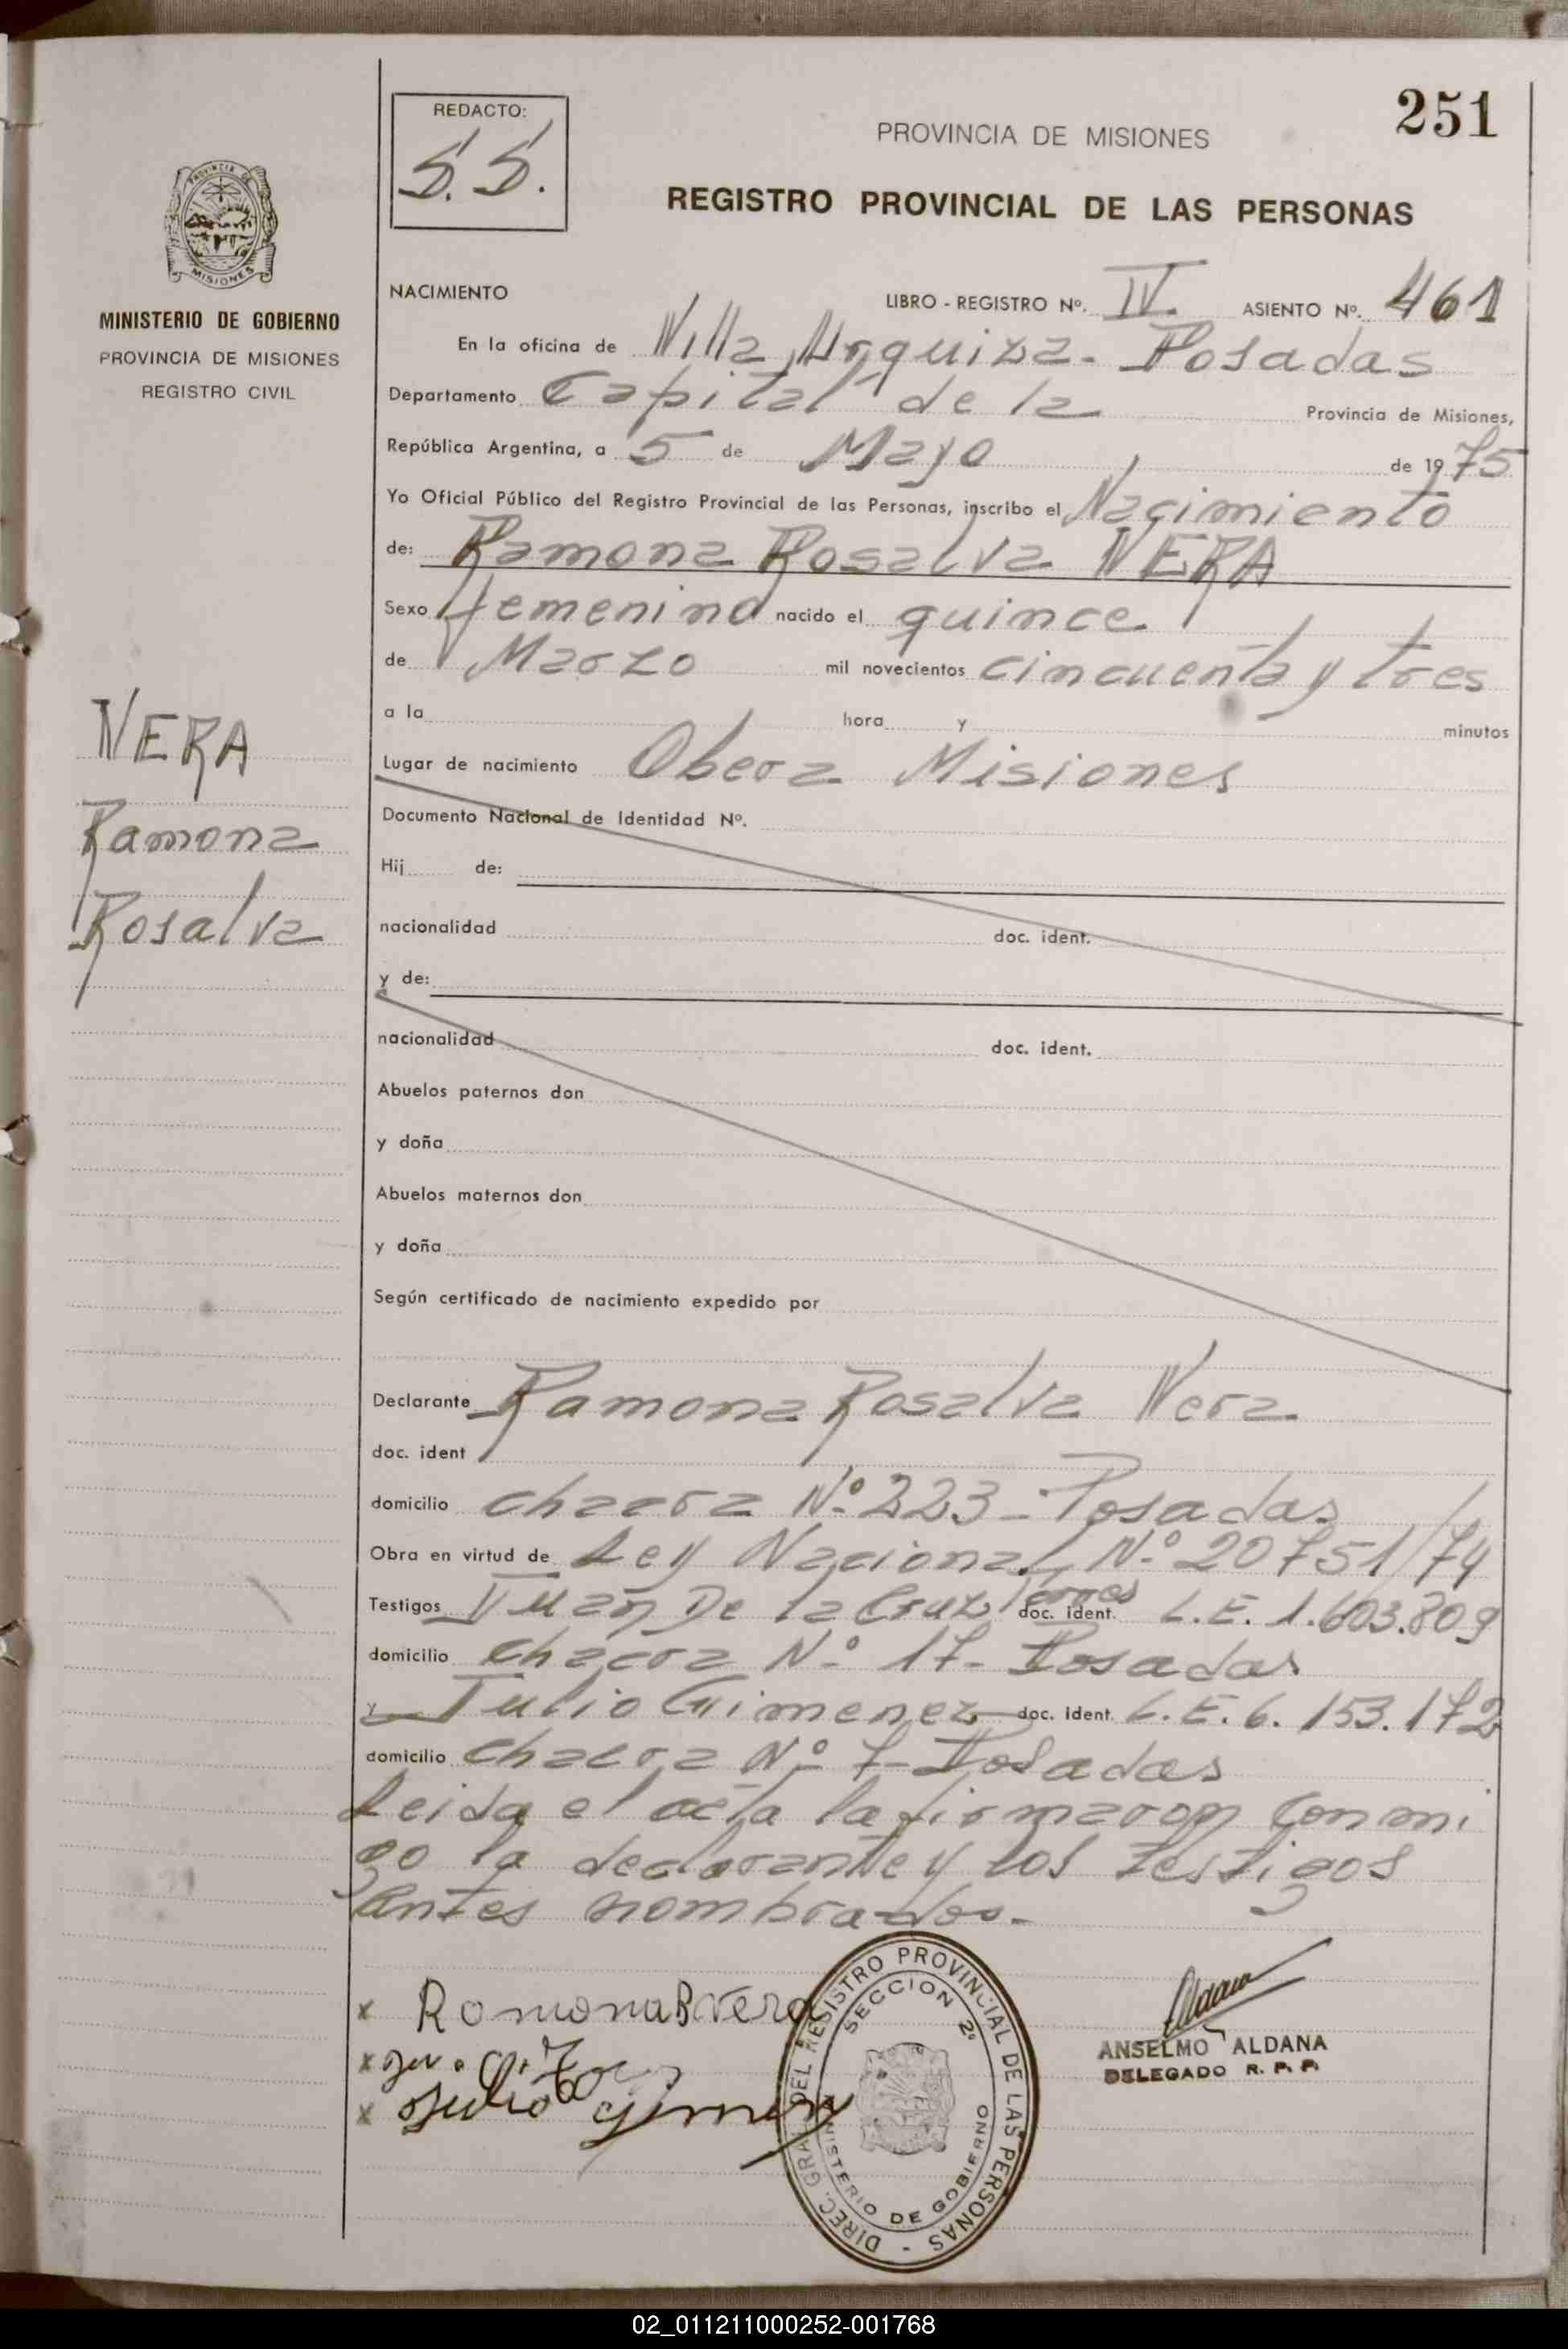 251
REDACTO:
S. S.
PROVINCIA DE MISIONES
REGISTRO PROVINCIAL DE LAS PERSONAS
PROVINCIA DE
MISIONES
MINISTERIO DE GOBIERNO
PROVINCIA DE MISIONES
REGISTRO CIVIL
NACIMIENTO LIBRO - REGISTRO Nº. IV. ASIENTO Nº. 461
En la oficina de Villa Urquiza - Posadas
Departamento Capital de la Provincia de Misiones,
República Argentina, a 5 de Mayo de 1975
Yo Oficial Público del Registro Provincial de las Personas, inscribo el Nacimiento
de: Ramona Rosalva VERA
Sexo femenino nacido el quince
de Marzo mil novecientos cincuenta y tres
a la hora y minutos
VERA
Ramona
Rosalva
Lugar de nacimiento Obera Misiones
Documento Nacional de Identidad Nº.
Hij de:
nacionalidad doc. ident.
y de:
nacionalidad doc. ident.
Abuelos paternos don
y doña
Abuelos maternos don
y doña
Según certificado de nacimiento expedido por
Declarante Ramona Rosalva Vera
doc. ident
domicilio chacra Nº 223 - Posadas
Obra en virtud de Ley Nacional Nº 20751/74
Testigos Juan De la Cruz Torres doc. ident. L.E. 1.603.809
domicilio chacra Nº 17 - Posadas
y Julio Gimenez doc. ident. L.E. 6.153.172
domicilio chacra Nº 7 - Posadas
Leida el acta la firmaron conmi
go la declarante y los testigos
antes nombrados.-
x Ramona R Vera
x
x Julio Gimenez
DIREC. GRAL. DEL REGISTRO PROVINCIAL DE LAS PERSONAS -
SECCION 2º
MINISTERIO DE GOBIERNO
Aldana
ANSELMO ALDANA
DELEGADO R. P. P.
02_011211000252-001768